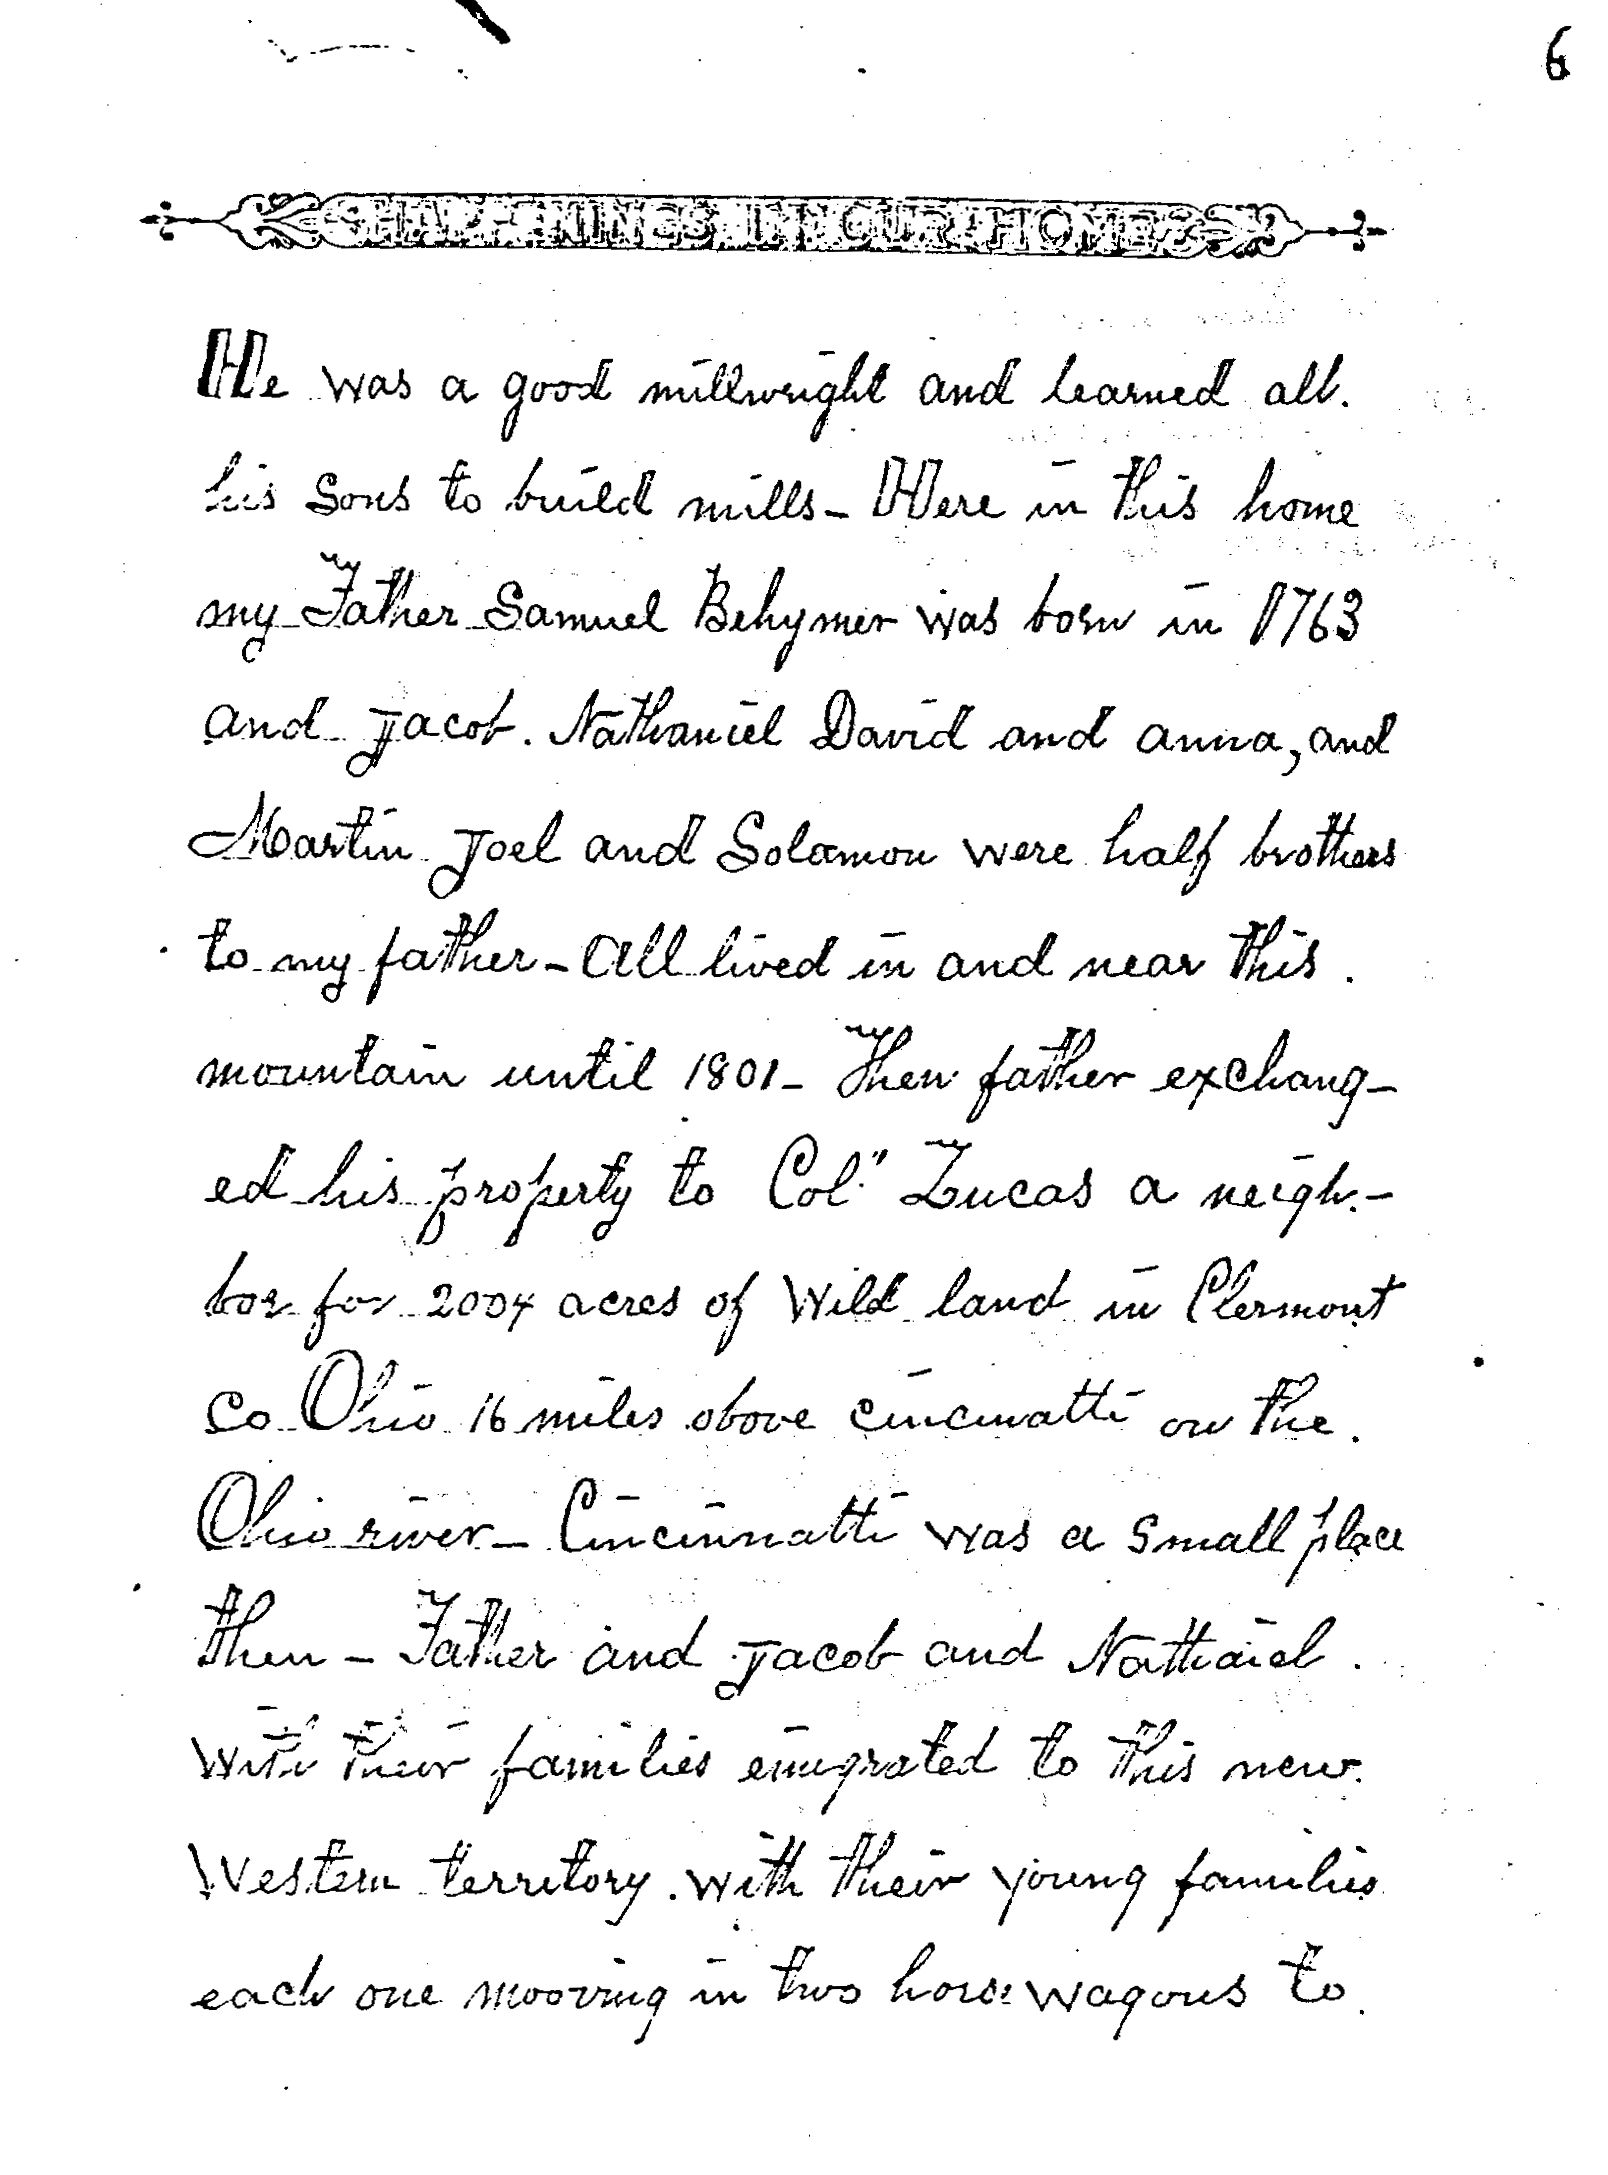 6
HAPPENINGS IN OUR HOME
He was a good millwright and learned all.
his Sons to build mills - Here in this home
my Father Samuel Behymer was born in 1763
and Jacob. Nathaniel David and anna, and
Martin Joel and Solamon were half brothers
to my father - All lived in and near this.
mountain until 1801 - Then father exchang-
ed his property to Col." Lucas a neigh.-
bor for 2004 acres of Wild land in Clermont
Co Ohio 16 miles above cincinatti on the.
Ohio river - Cincinnatti was a small place
then - Father and Jacob and Nathaiel.
With their families emigrated to this new.
Western territory. with their young families
each one mooving in two horse wagons to.